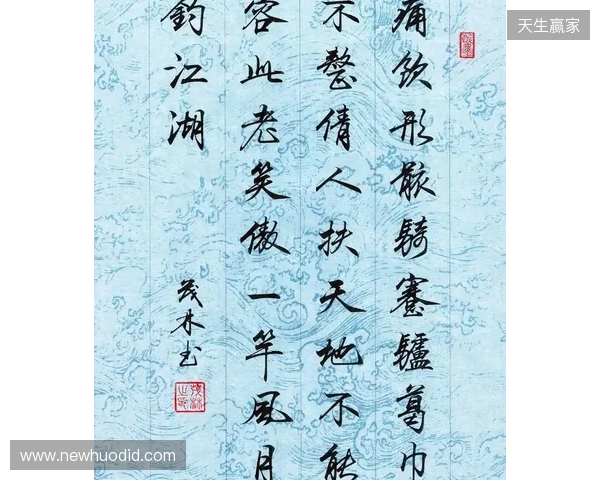 天生赢家
痛饮形骸騎蹇驢葛巾
不整倩人扶天地不能
容此老笑傲一竿風月
釣江湖
茂林书
www.newhuodid.com